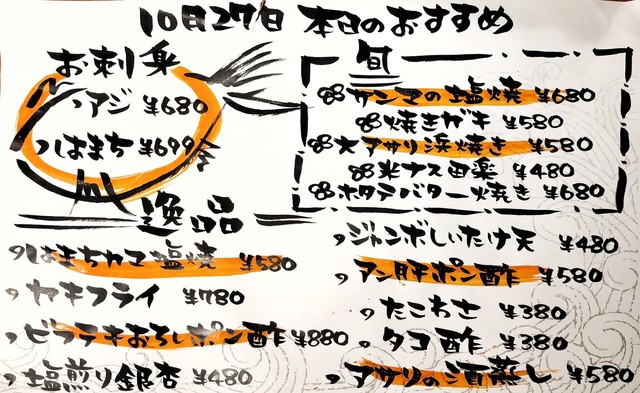 10月27日 本日のおすすめ
お刺身
アジ ¥680
はまち ¥699
旬
サンマの塩焼 ¥680
焼きガキ ¥580
大アサリ浜焼き ¥580
米ナス田楽 ¥480
ホタテバター焼き ¥680
逸品
はまちカマ塩焼 ¥580
カキフライ ¥780
ビフテキおろしポン酢 ¥880
塩煎り銀杏 ¥480
ジャンボしいたけ天 ¥480
アン肝ポン酢 ¥580
たこわさ ¥380
タコ酢 ¥380
アサリの酒蒸し ¥580